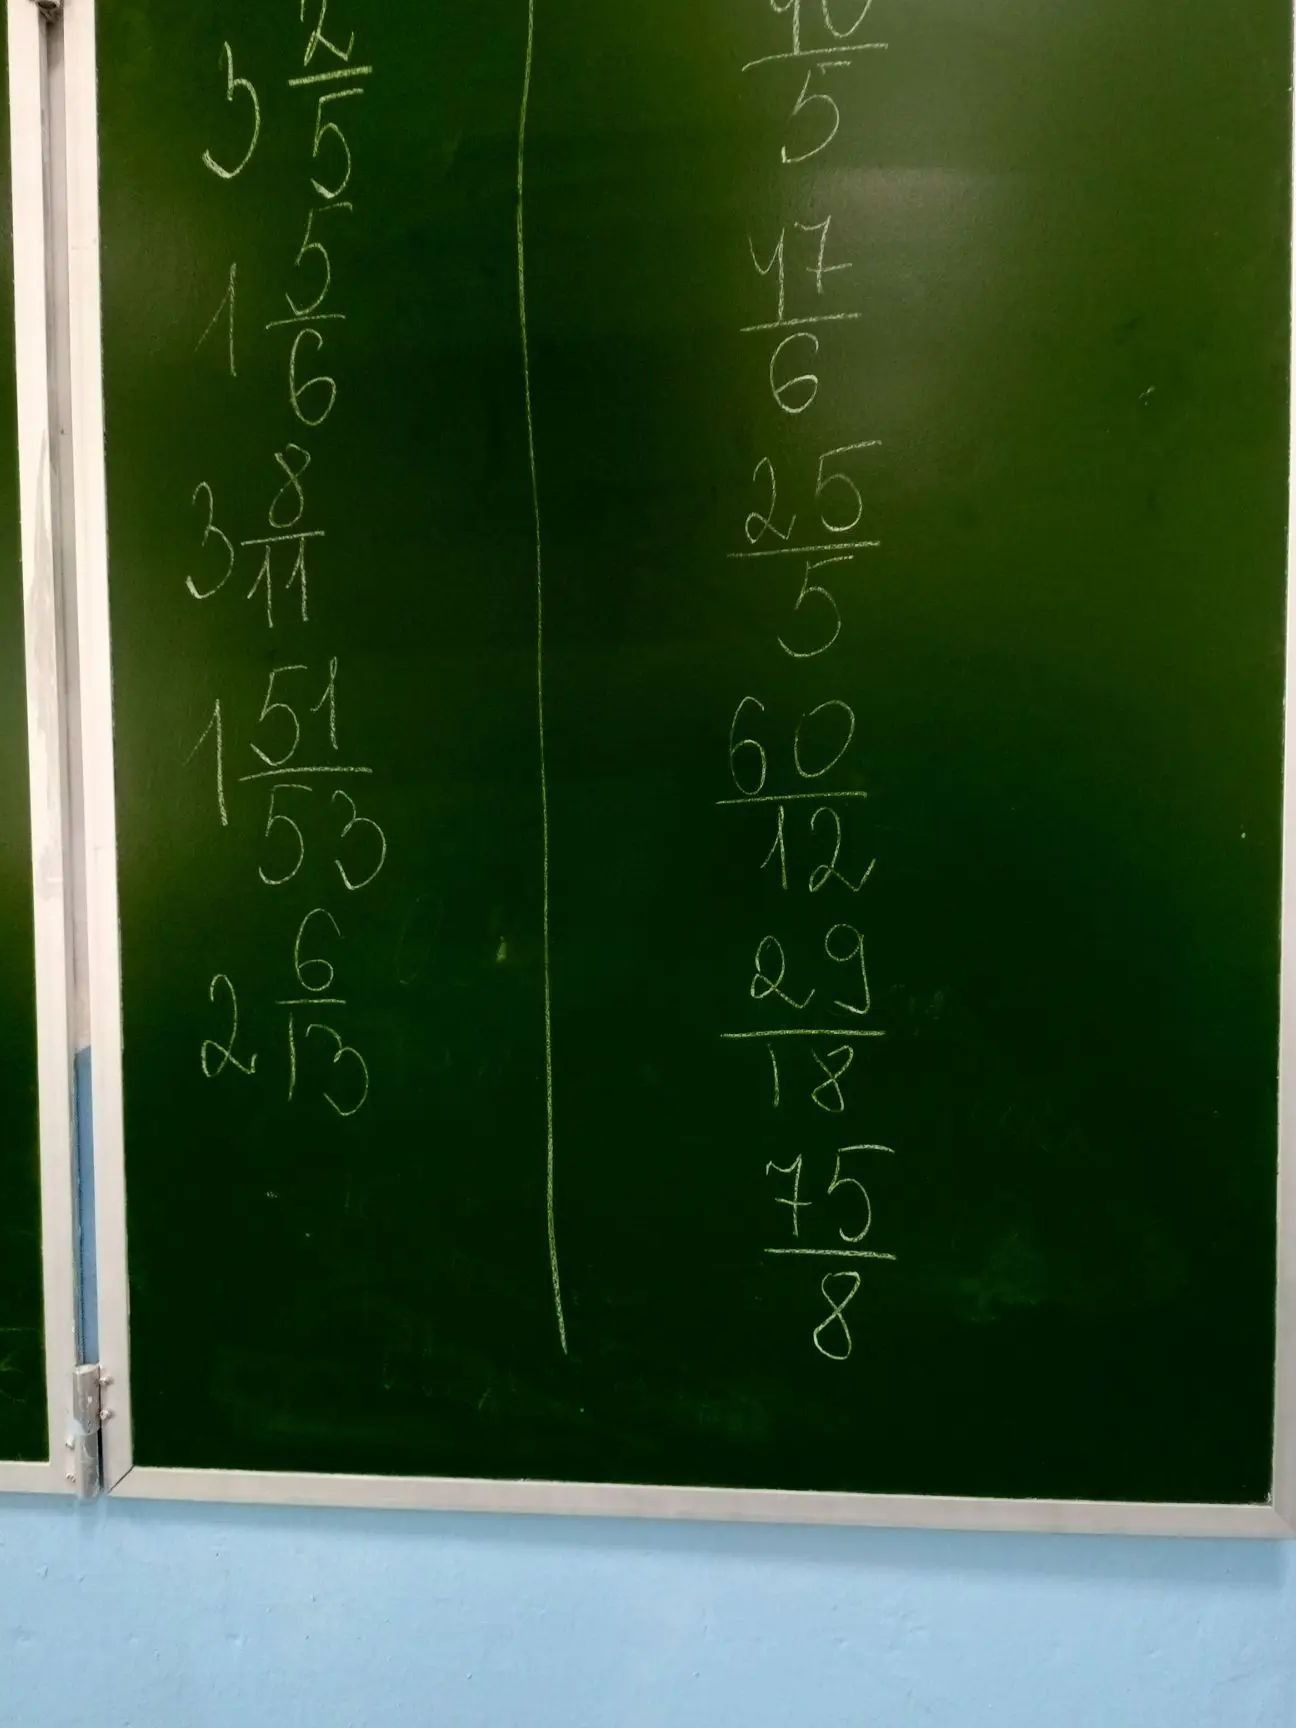 3 2/5
1 5/6
3 8/11
1 51/53
2 6/13
40/5
47/6
25/5
60/12
29/18
75/8